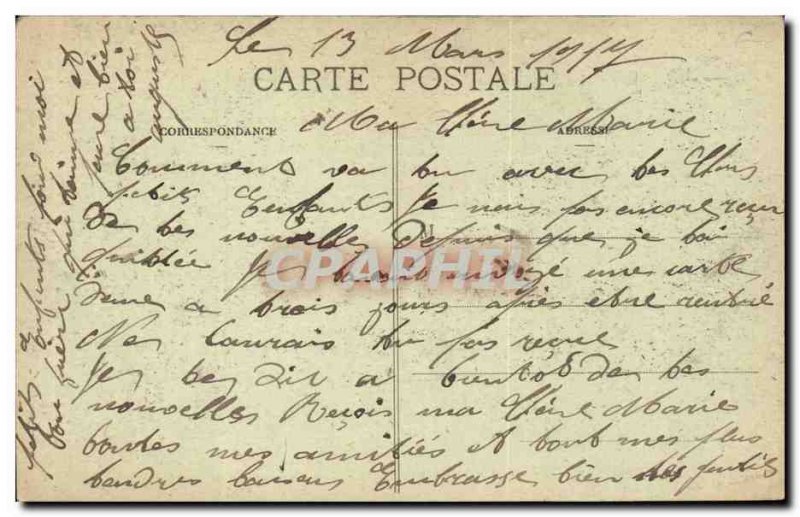 Le 13 Mars 1917
CARTE POSTALE
CORRESPONDANCE
ADRESSE
Ma Chère Marie
Comment va tu avec tes Chers
petits Enfants Je nais pas encore reçu
de tes nouvelles depuis que je tai
quittée Je tavait envoyé une carte
deux a trois jours après etre rentré
Ne laurais tu pas reçue
Je te dit a bientôt de tes
nouvelles Reçois ma Chère Marie
toutes mes amitiés et tout mes plus
tendres baisers Embrasse bien tes gentils
petits Enfants pour moi
ton frère qui taime et
pense bien
a toi
auguste
CPAPHIL